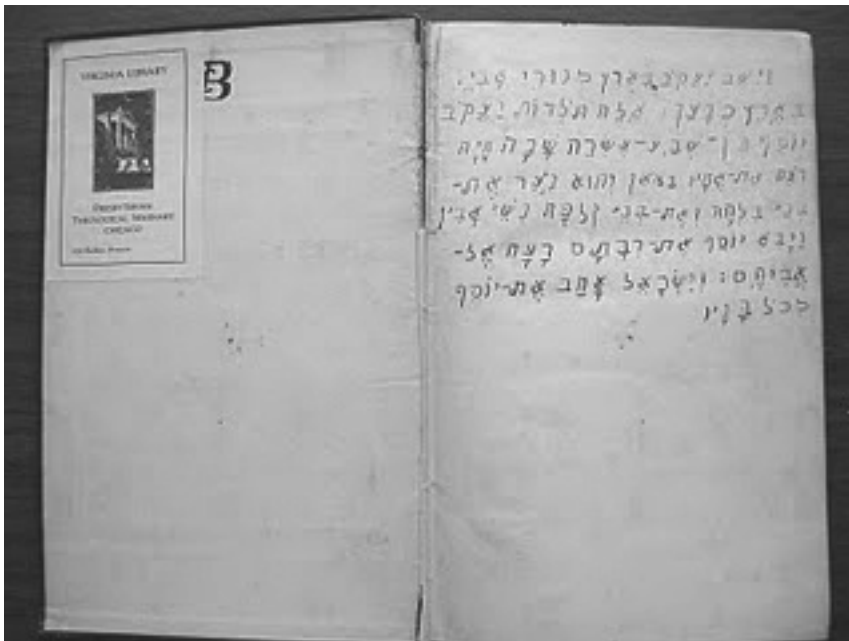 VIRGINIA LIBRARY
PRESBYTERIAN
THEOLOGICAL SEMINARY
CHICAGO
B
וישב יעקב בארץ מגורי אביו
בארץ כנען: אלה תלדות יעקב
יוסף בן-שבע-עשרה שנה היה
רעה את-אחיו בצאן והוא נער את-
בני בלהה ואת-בני זלפה נשי אביו
ויבא יוסף את-דבתם רעה אל-
אביהם: וישראל אהב את-יוסף
מכל בניו